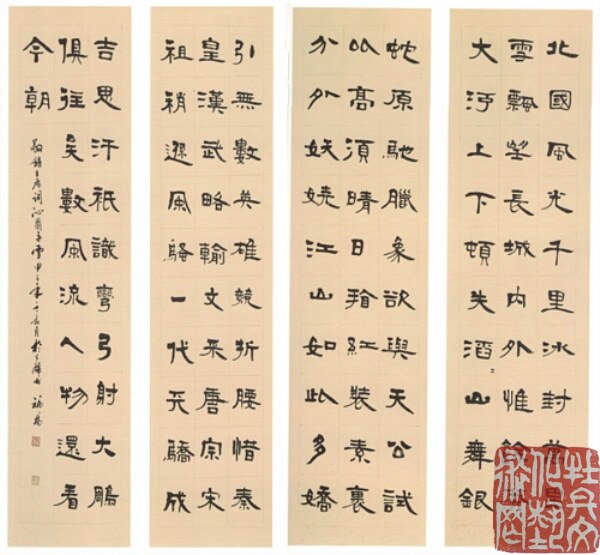 北國風光千里冰封
雪飄望長城內外惟
大河上下頓失滔〻山舞銀
蛇原馳臘象欲與天公試
比高須晴日看紅裝素裹
分外妖嬈江山如此多嬌
引無數英雄競折腰惜秦
皇漢武略輸文采唐宗宋
祖稍遜風騷一代天驕成
吉思汗祇識彎弓射大鵰
俱往矣數風流人物還看
今朝
敬錄主席詞沁園春雪